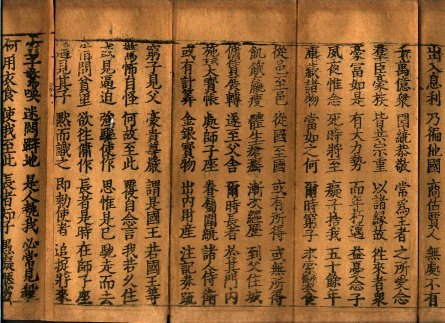 出入息利 乃徧他國 商估賈人 無處不有
千萬億衆 圍繞恭敬 常爲王者 之所愛念
羣臣豪族 皆共宗重 以諸緣故 徃來者衆
豪富如是 有大力勢 而年朽邁 益憂念子
夙夜惟念 死時將至 癡子捨我 五十餘年
庫藏諸物 當如之何 爾時窮子 求索衣食
從邑至邑 從國至國 或有所得 或無所得
飢餓羸瘦 體生瘡癬 漸次經歷 到父住城
傭賃展轉 遂至父舍 爾時長者 於其門內
施大寶帳 處師子座 眷屬圍繞 諸人侍衛
或有計筭 金銀寶物 出內財産 注記券疏
窮子見父 豪貴尊嚴 謂是國王 若國王等
驚怖自怪 何故至此 覆自念言 我若久住
或見逼迫 強驅使作 思惟是已 馳走而去
借問貧里 欲徃傭作 長者是時 在師子座
遙見其子 默而識之 即勅使者 追捉將來
窮子驚喚 迷悶躄地 是人執我 必當見殺
何用衣食 使我至此 長者知子 愚癡狹劣